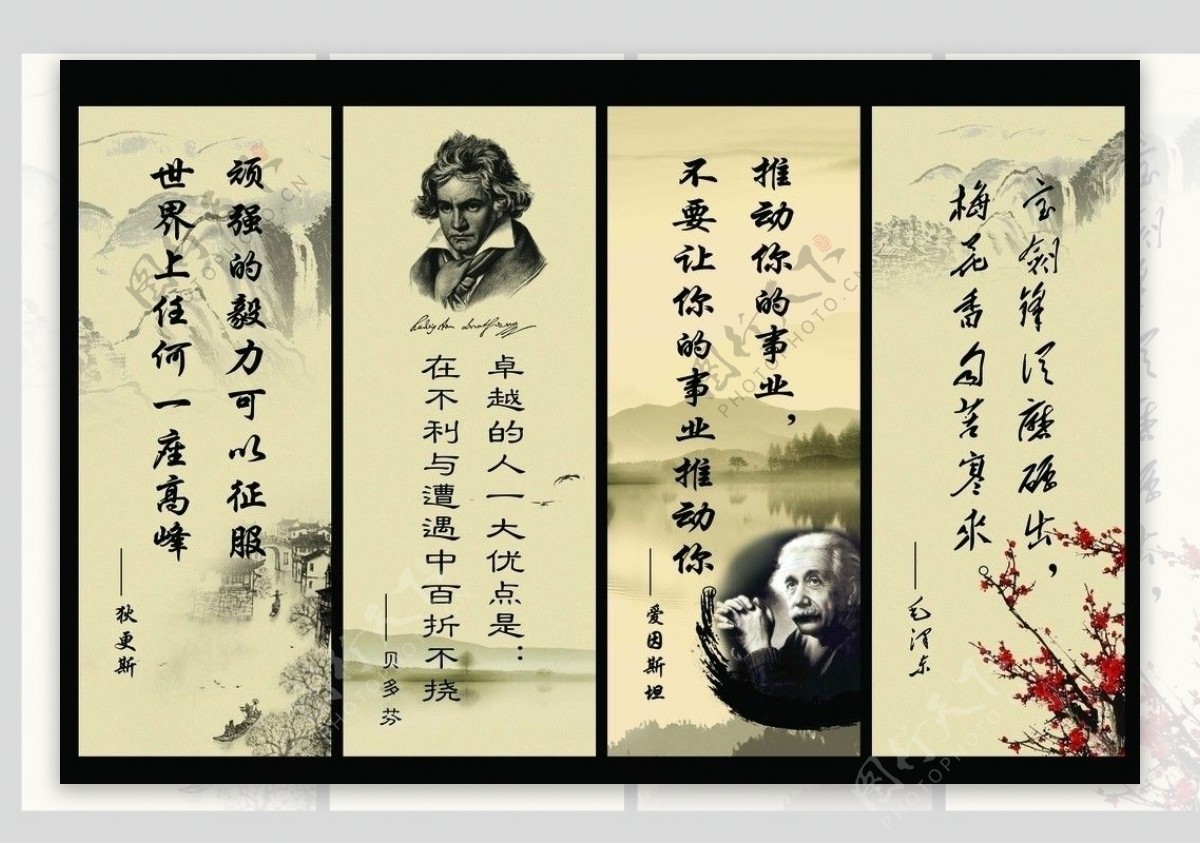 顽强的毅力可以征服
世界上任何一座高峰
——狄更斯
卓越的人一大优点是：
在不利与遭遇中百折不挠
——贝多芬
推动你的事业，
不要让你的事业推动你
——爱因斯坦
宝剑锋从磨砺出，
梅花香自苦寒来。
——毛泽东
图行天下
PHOTOPHOTO.CN